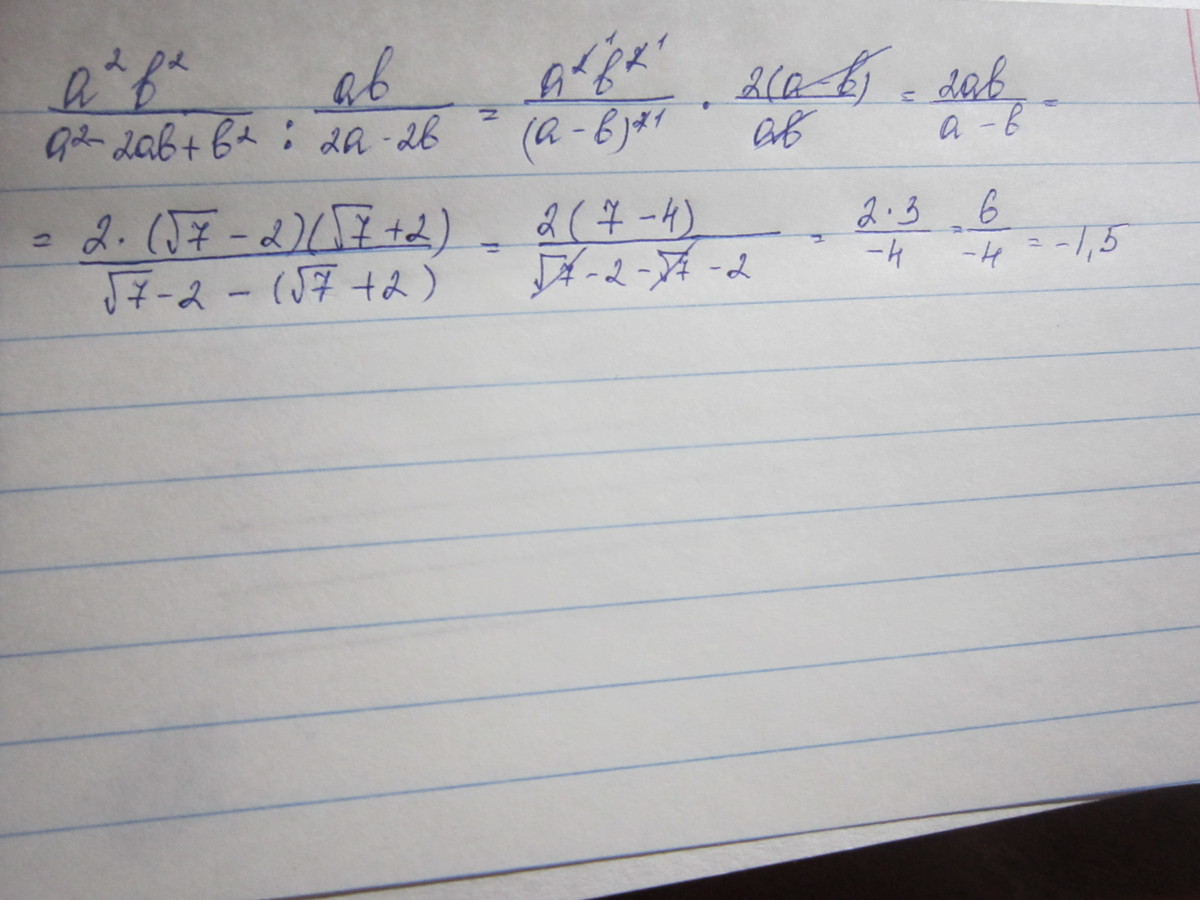 a²b²/(a²-2ab+b²) : ab/(2a-2b) = a²¹b²¹/(a-b)²¹ · 2(a-b)/ab = 2ab/(a-b) =
= 2·(√7-2)(√7+2)/(√7-2-(√7+2)) = 2(7-4)/(√7-2-√7-2) = 2·3/-4 = 6/-4 = -1,5